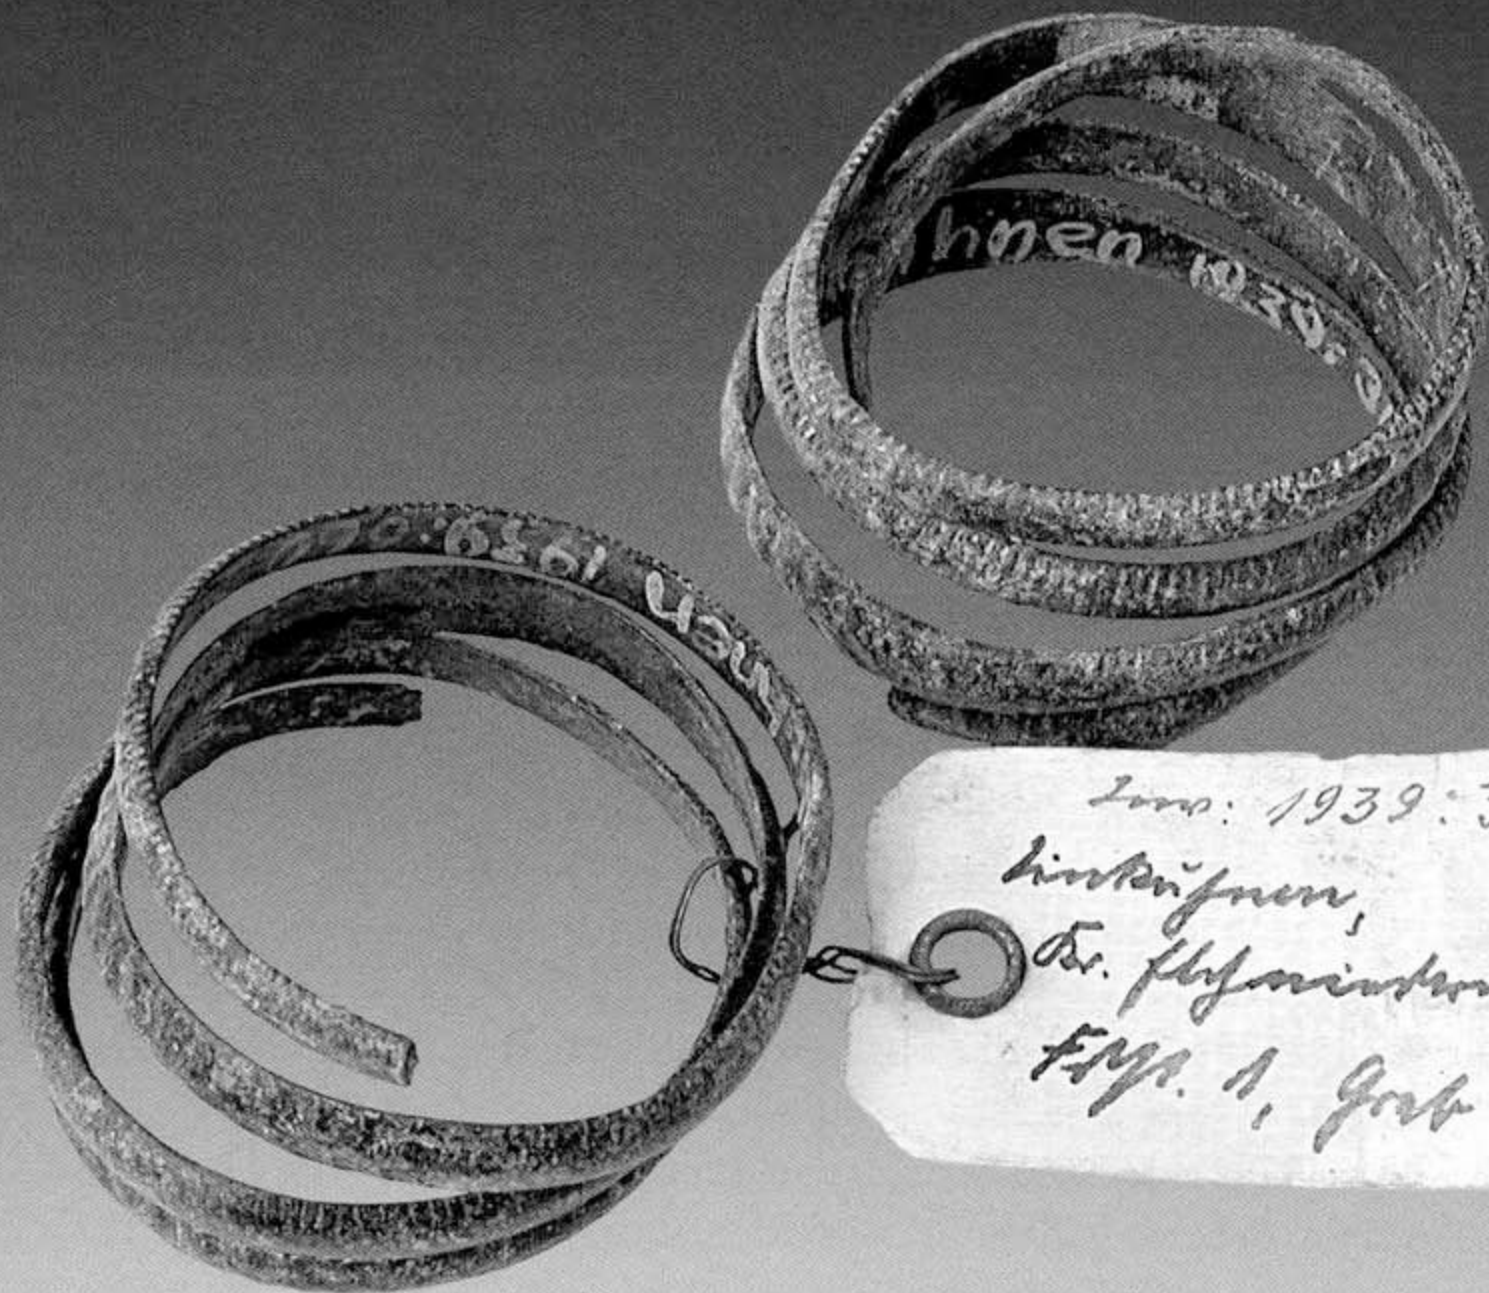 hnen 1939:
1939:
Inv: 1939:3
Linkuhnen,
Kr. Elchniederu
Fdpl. 1, Grab